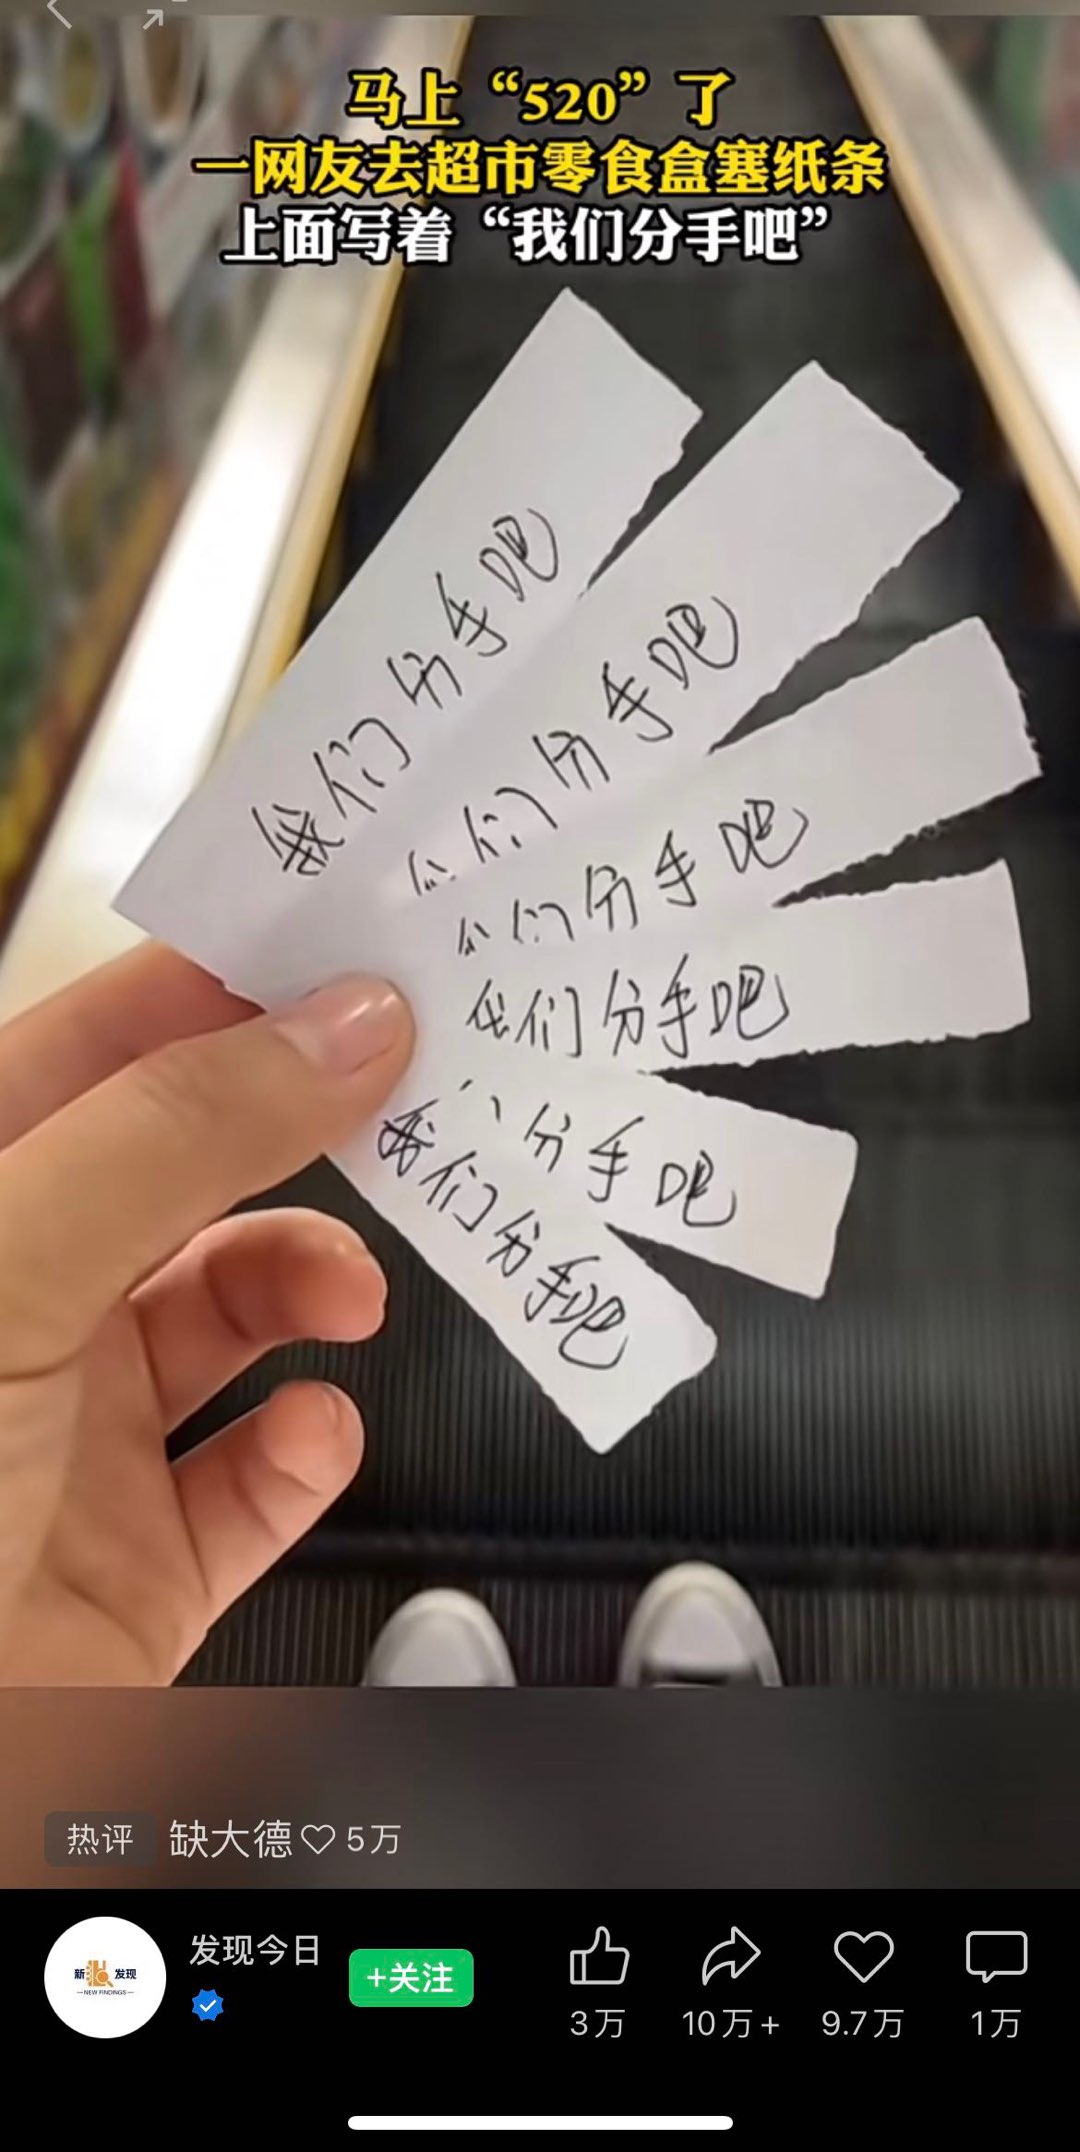 马上“520”了
一网友去超市零食盒塞纸条
上面写着“我们分手吧”
我们分手吧
们分手吧
们分手吧
我们分手吧
分手吧
我们分手吧
热评 缺大德 5万
新发现
NEW FINDINGS
发现今日
+关注
3万 10万+ 9.7万 1万